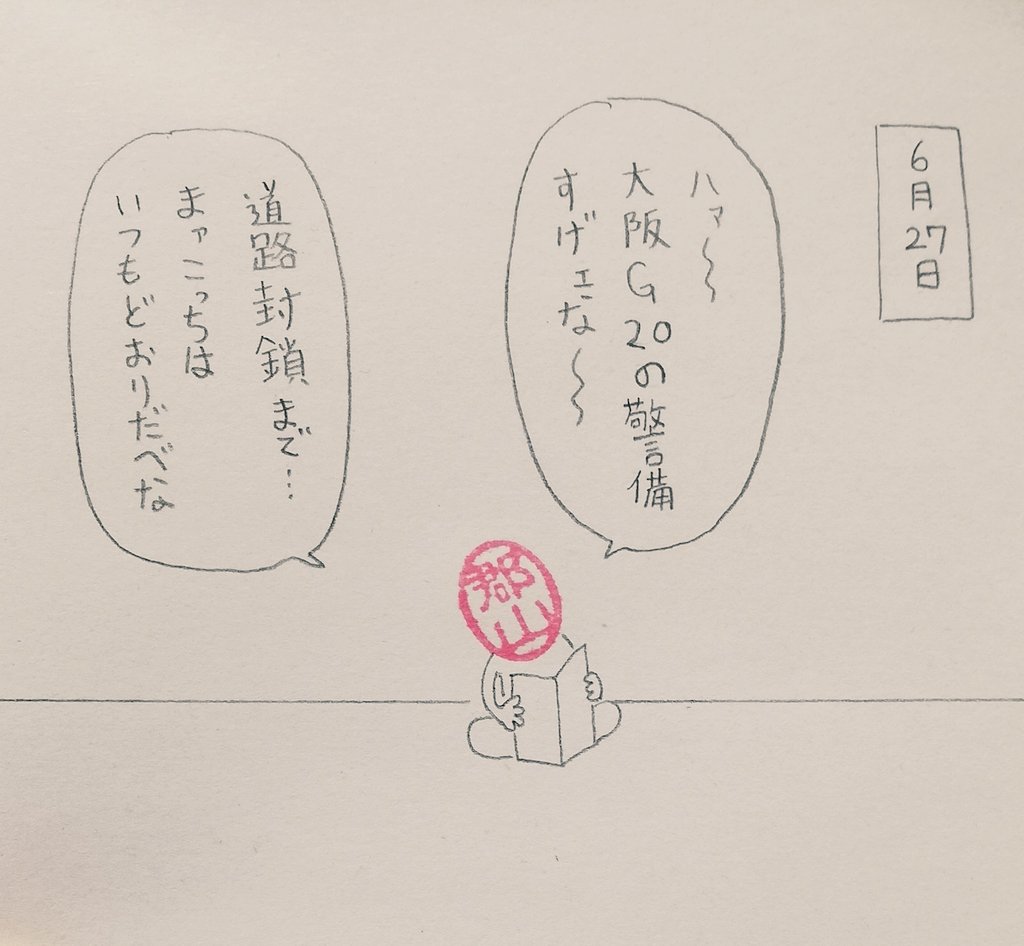 6月27日
ハァ〜〜
大阪G20の警備
すげェな〜〜
道路封鎖まで…
まァこっちは
いつもどおりだべな
郡山